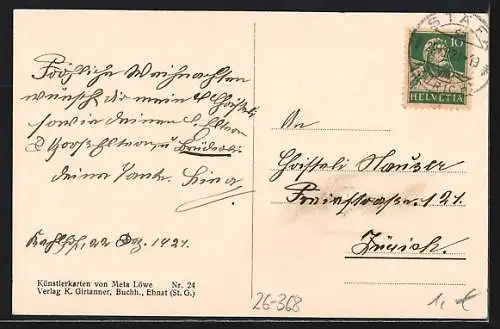 Fröhliche Weihnachten
wünscht dir mein l. Christeli
sowie deinen l. Eltern
& Großeltern u. Brüderli
deine Tante. Lina
22 Dez. 1921.
Künstlerkarten von Meta Löwe Nr. 24
Verlag K. Girtanner, Buchh., Ebnat (St. G.)
STÄFA
10
HELVETIA
An
Christeli Hauser
Freiestrasse 121.
Zürich.
26-368
1,- €